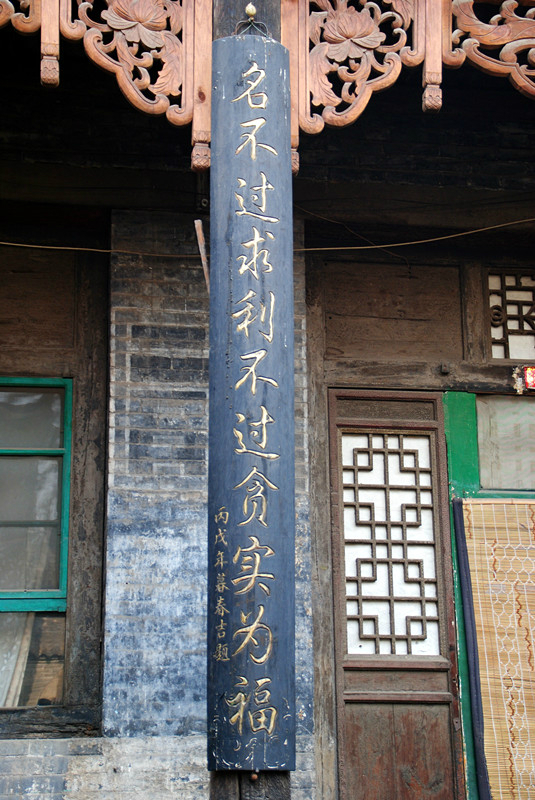 名不过求利不过贪实为福
丙戌年暮春吉题